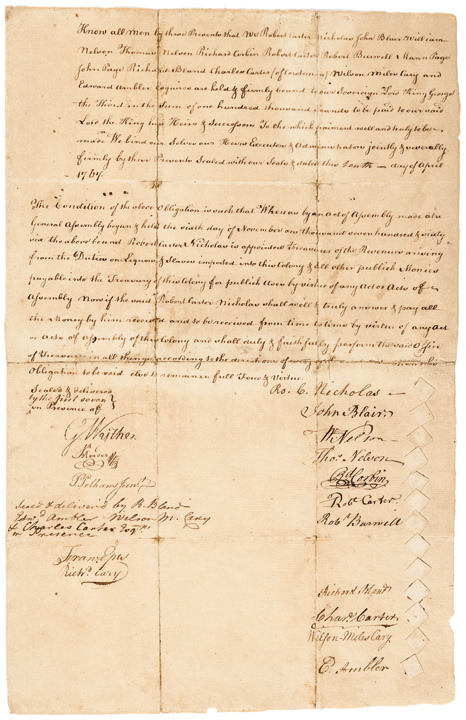 Know all men by these Presents that We Robert Carter Nicholas John Blair William
Nelson Thomas Nelson Richard Corbin Robert Carter Robert Burwell Mann Page
John Page Richard Bland Charles Carter (of Corotoman) Wilson Miles Cary and
Edward Ambler Esquires are held & firmly bound to our Sovereign Lord King George
the Third in the Sum of one hundred thousand pounds to be paid to our said
Lord the King his Heirs & Successors To the which paiment well and truly to be
made We bind our Selves our Heirs Executors & Administrators jointly & severally
firmly by these Presents Sealed with our Seals & dated this tenth day of April
1767.
The Condition of the above Obligation is such that Whereas by an Act of Assembly made at a
General Assembly begun & held the sixth day of November one thousand seven hundred & sixty
six the above bound Robert Carter Nicholas is appointed Treasurer of the Revenues arising
from the Duties on Liquors & Slaves imported into this Colony & all other publick Monies
payable into the Treasury of this Colony for publick Uses by virtue of any Act or Acts of
Assembly Now if the said Robert Carter Nicholas shall well & truly answer & pay all
the Money by him received and to be received from time to time by virtue of any Act
or Acts of Assembly of this Colony and shall duly & faithfully perform the said Office
of Treasurer in all things according to the directions of
Obligation to be void else to remain in full Force & Virtue.
Sealed & delivered
by the first seven
in Presence off
Ro. C. Nicholas
John Blair
W Nelson
Thos. Nelson
Rd Corbin
Robt. Carter
Robt. Burwell
G. Wythe
Seal'd & deliverd by R. Bland
Edwd Ambler Wilson M. Cary
& Charles Carter Esqrs.
in Presence
Franc Eppes
Richd. Cary
Richard Bland
Chars. Carter
Wilson-Miles Cary
E. Ambler